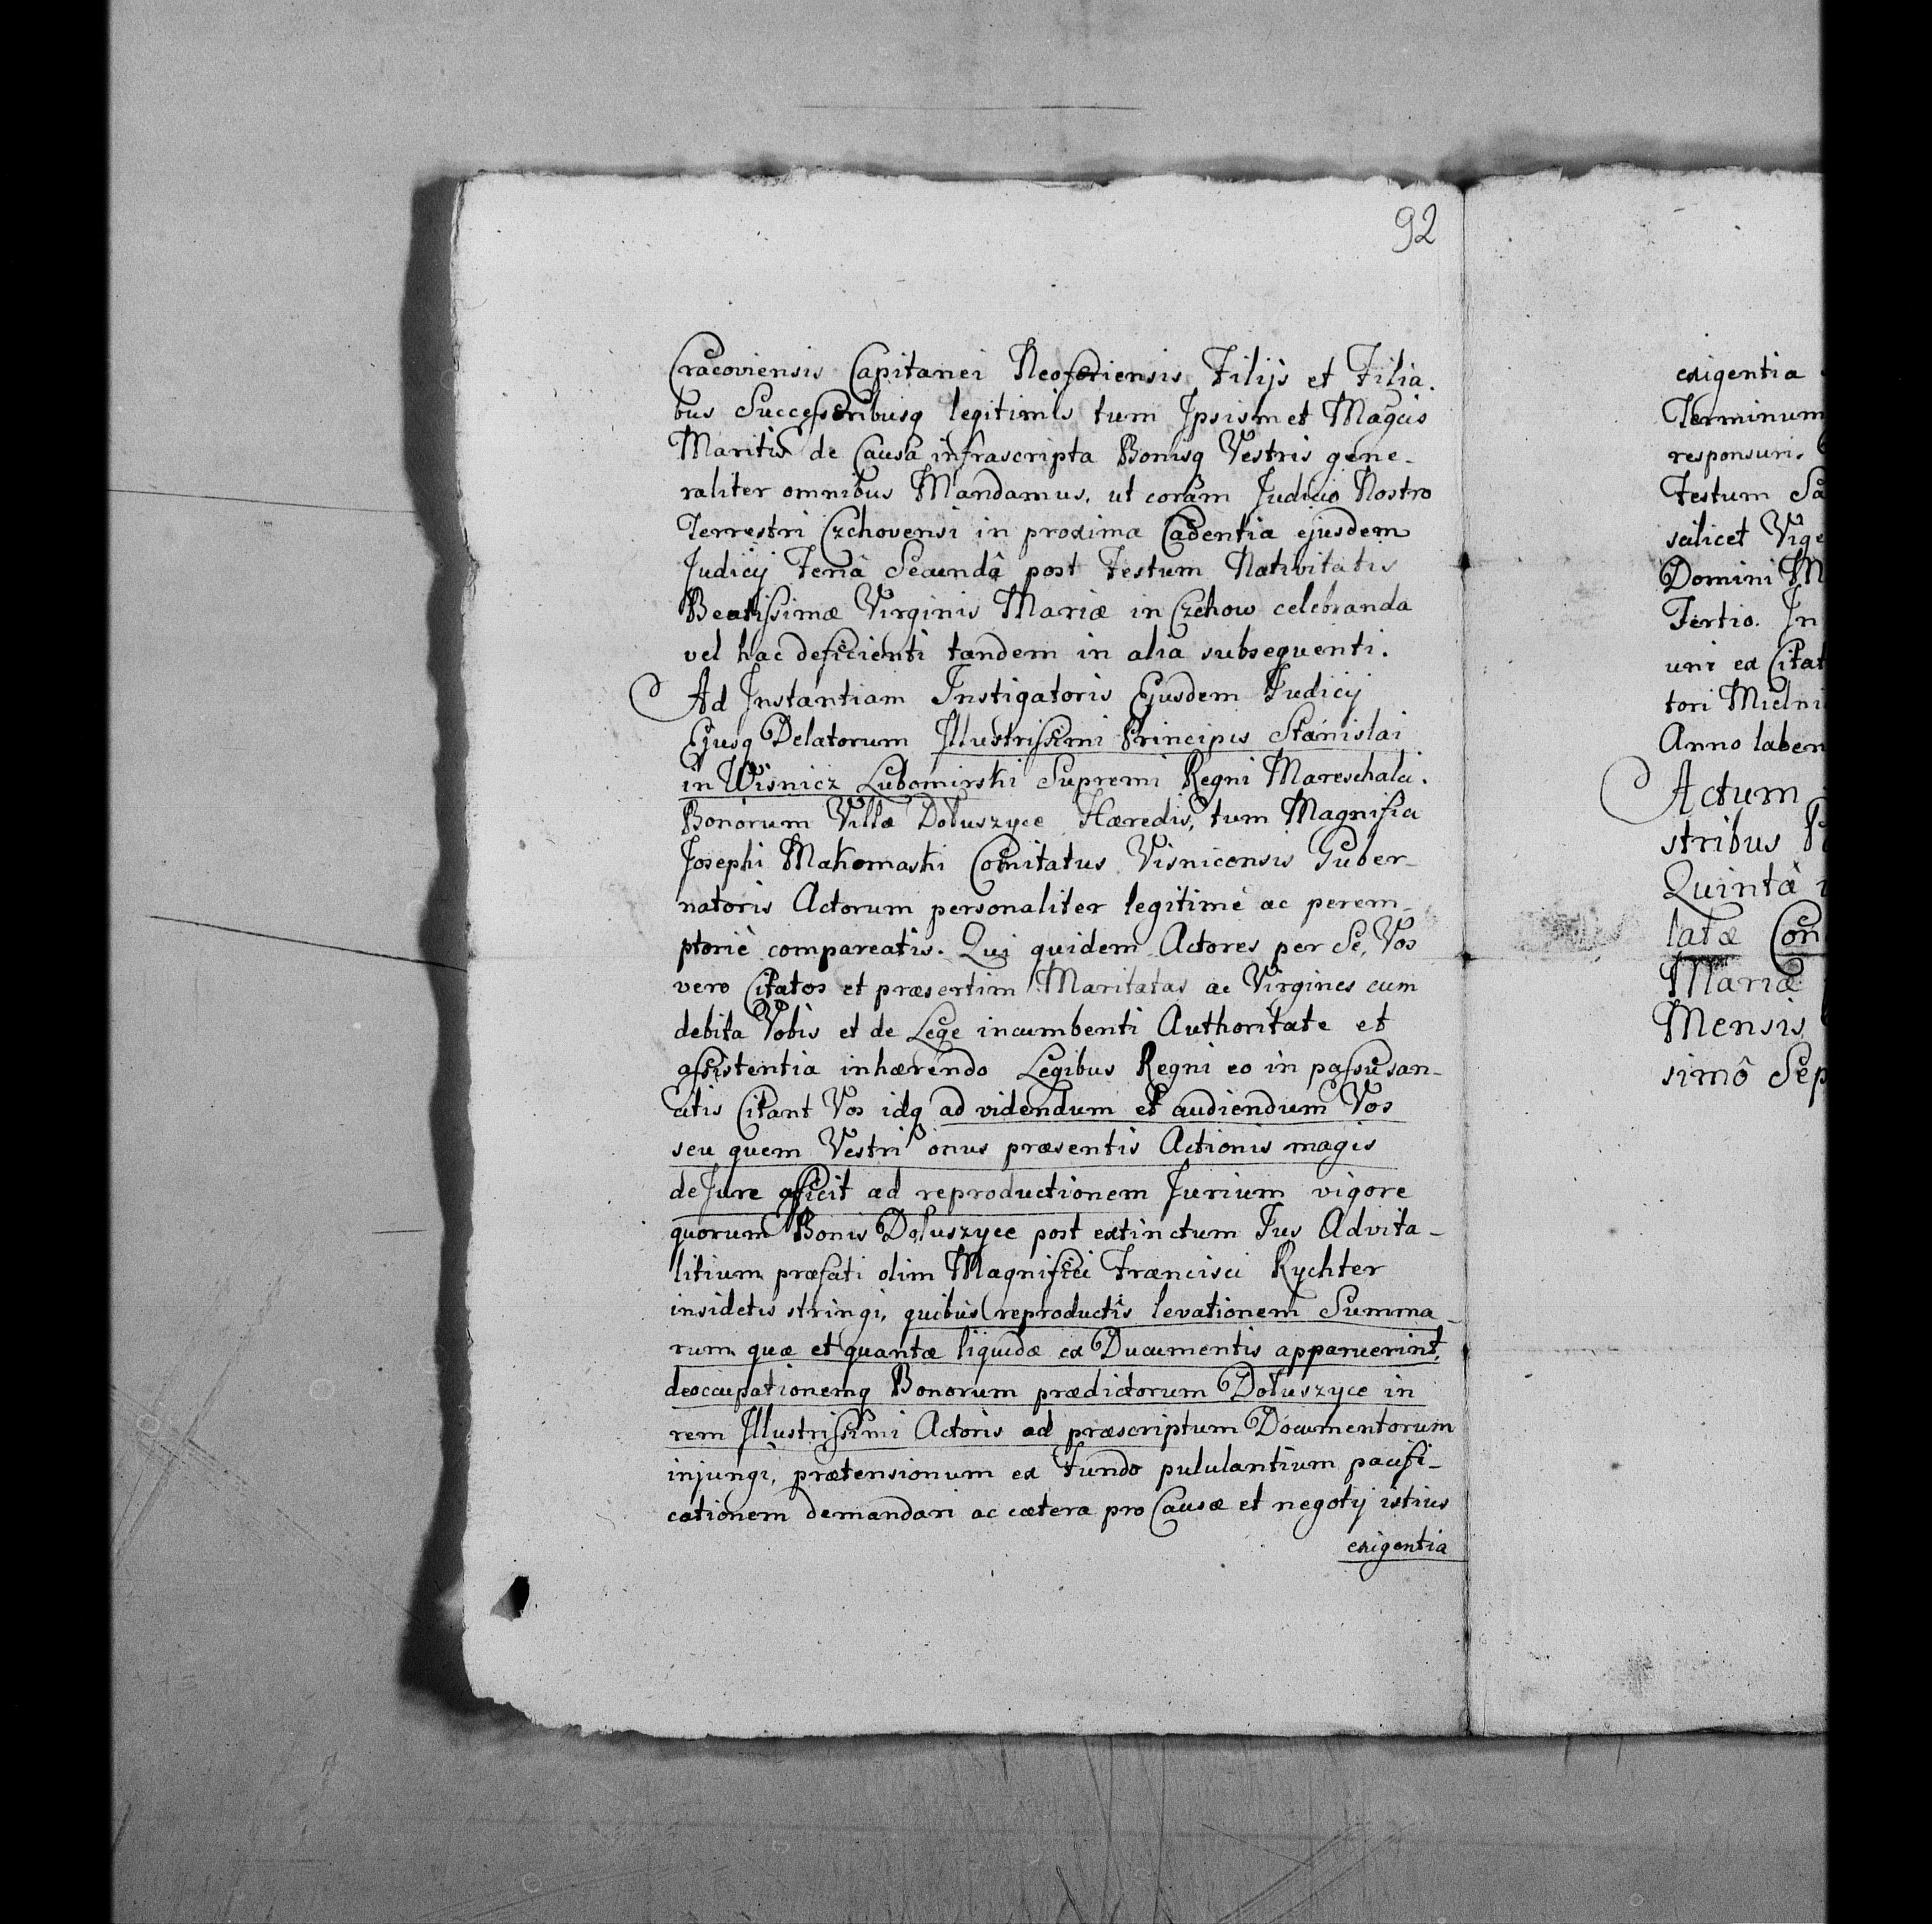 92
Cracoviensis Capitanei Neoforiensis Filijs et Filia.
bus Successoribusq legitimis tum Ipsismet Magcis
Maritis de Causa infrascripta Bonisq Vestris gene-
raliter omnibus Mandamus, ut coram Judicio Nostro
Terrestri Czchoviensi in proxima Cadentia ejusdem
Judicij Feria Secundâ post Festum Nativitatis
Beatissimæ Virginis Mariæ in Czchow celebranda
vel hac deficienti tandem in alia subsequenti.
Ad Instantiam Instigatoris Ejusdem Judicij
Ejusq Delatorum Illustrissimi Principis Stanislai
in Wisnicz Lubomirski Supremi Regni Mareschalci.
Bonorum Villæ Dołuszyce Hæredis, tum Magnifici
Josephi Makomaski Comitatus Visnicensis Guber-
natoris Actorum personaliter legitimè ac perem-
ptoriè compareatis. Qui quidem Actores per Se, Vos
vero Citatos et præsertim Maritatas ac Virgines cum
debita Vobis et de Lege incumbenti Authoritate et
assistentia inhærendo Legibus Regni eo in passu san-
citis Citant Vos idq ad videndum et audiendum Vos
seu quem Vestri onus præsentis Actionis magis
de Jure afficit ad reproductionem Jurium vigore
quorum Bonis Dołuszyce post extinctum Jus Advita-
litium præfati olim Magnifici Francisci Rychter
insidetis stringi, quibus reproductis levationem Summa-
rum quæ et quantæ liquidæ ex Ducumentis apparuerint,
deoccupationemq Bonorum prædictorum Dołuszyce in
rem Illustrissimi Actoris ad præscriptum Documentorum
injungi, prætensionum ex Fundo pululantium pacifi-
cationem demandari ac cætera pro Causæ et negotij istius
exigentia
exigentia
Terminum
responsuri.
Festum Sa
scilicet Vige
Domini M
Tertio. In
uni ex Citat
tori Mielni
Anno laben
Actum
stribus
Quintâ
latæ Con
Mariæ
Mensis
simô Sep